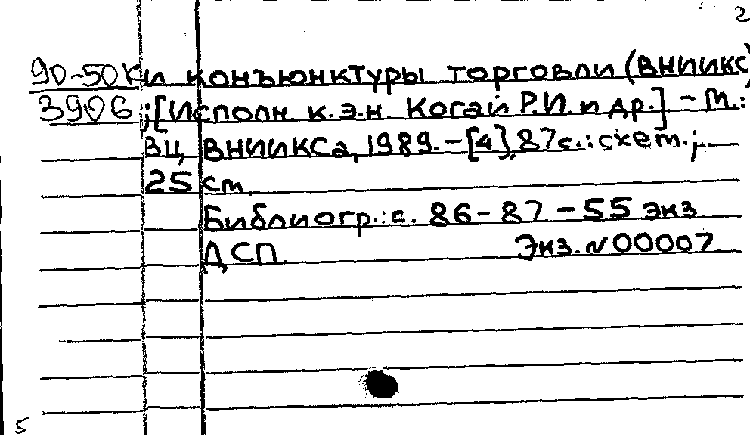 2
90-50К и конъюнктуры торговли (ВНИИКС)
3906 ; [Исполн. к.э.н. Когай Р.И. и др.] - М.:
ВЦ ВНИИКСа, 1989. - [4], 87 с.: схем.;
25 см.
Библиогр.: с. 86-87 - 55 экз
ДСП Экз. N 00007
5